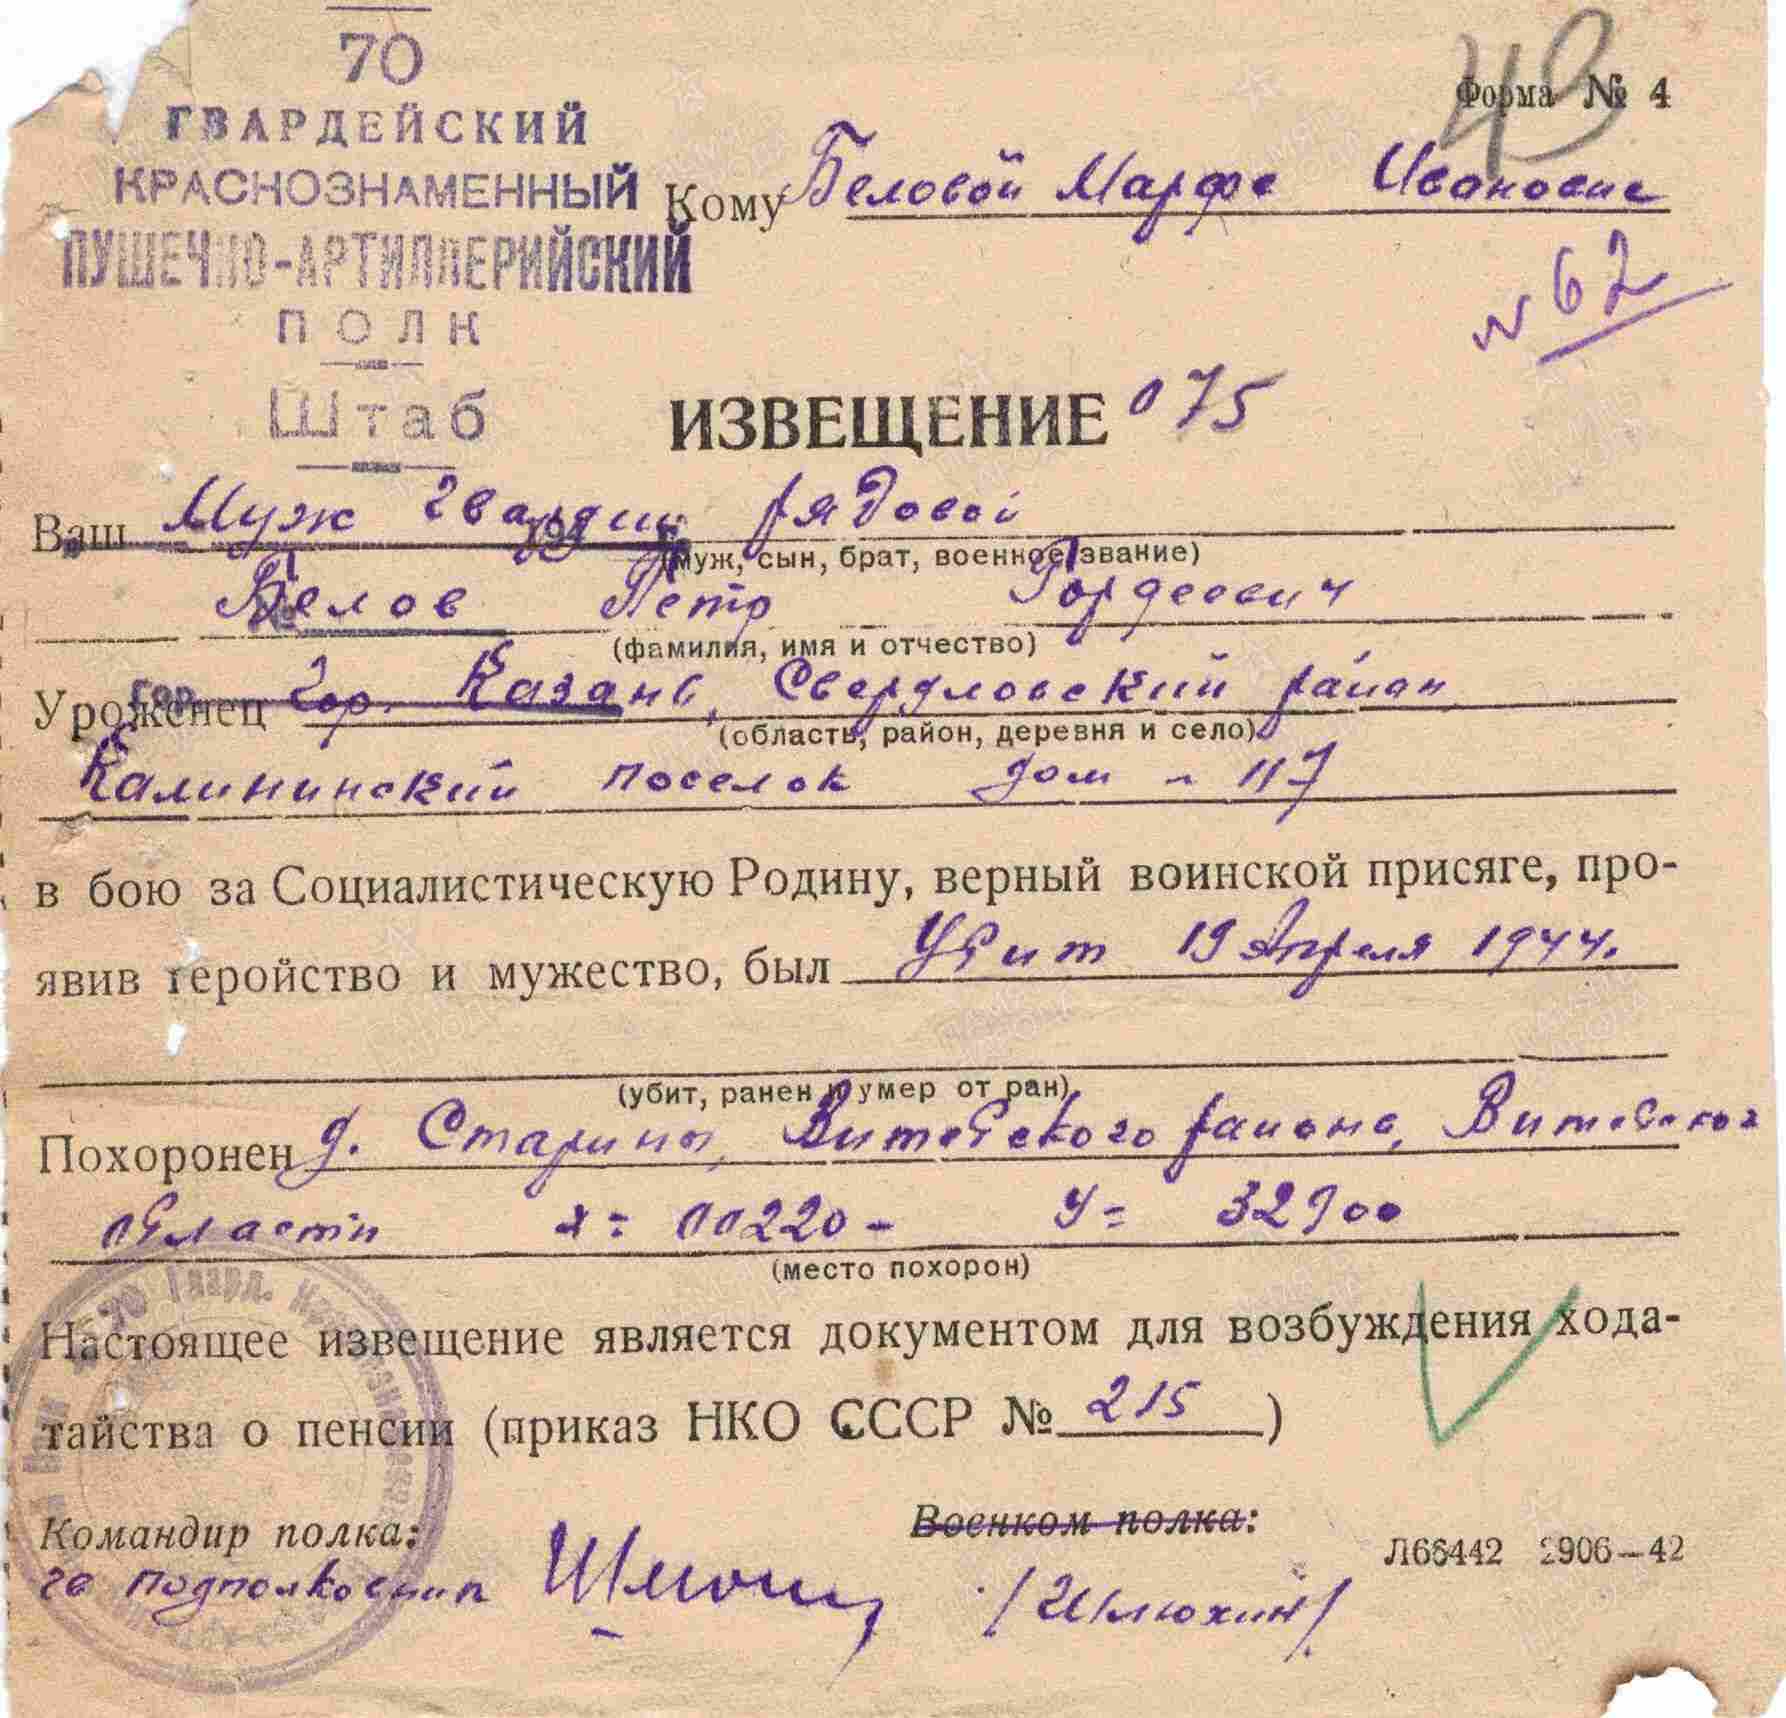 70
ГВАРДЕЙСКИЙ
КРАСНОЗНАМЕННЫЙ
ПУШЕЧНО-АРТИЛЛЕРИЙСКИЙ
ПОЛК
Штаб
43
Форма № 4
Кому Беловой Марфе Ивановне
N 62
ИЗВЕЩЕНИЕ 075
Ваш Муж гвардии рядовой
(муж, сын, брат, военное звание)
Белов Петр Гордеевич
(фамилия, имя и отчество)
Уроженец гор. Казань, Свердловский район,
(область, район, деревня и село)
Калининский поселок дом - 117
в бою за Социалистическую Родину, верный воинской присяге, про-
явив геройство и мужество, был Убит 19 Апреля 1944.
(убит, ранен и умер от ран)
Похоронен д. Старины, Витебского района, Витебской
области х = 00220 - У = 32900
(место похорон)
Настоящее извещение является документом для возбуждения хода-
тайства о пенсии (приказ НКО СССР № 215 )
Командир полка:
Военком полка:
гв подполковник /Шлюхин/
Л66442 2906—42